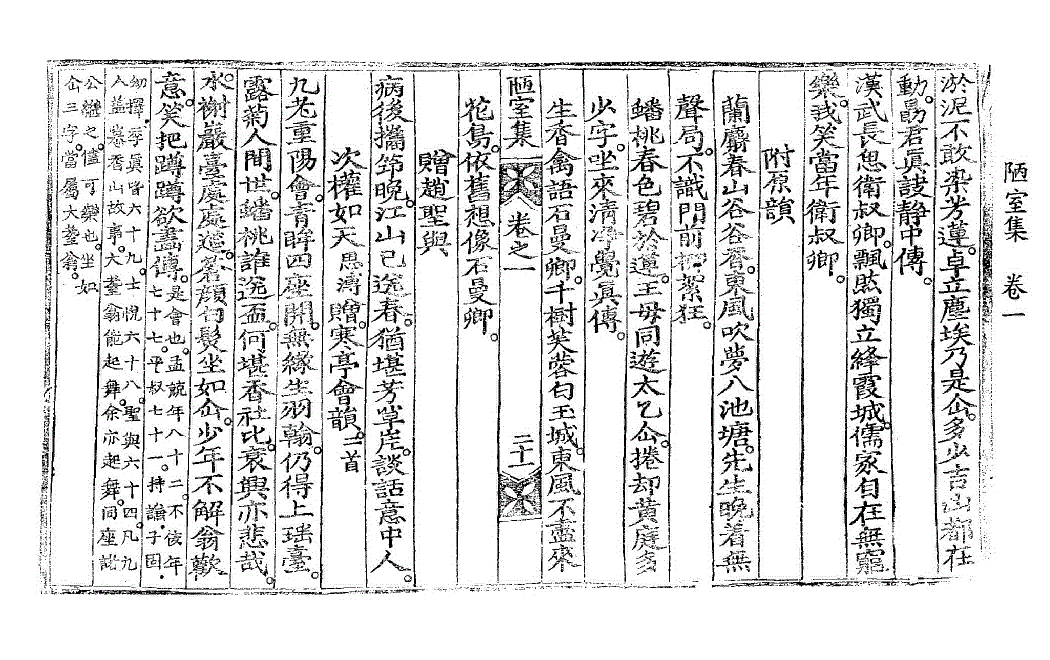 陋室集　卷一
淤泥不敢染芳蓮。卓立塵埃乃是仚。多少吉凶都在
動。勗君眞訣静中傳。
漢武長思衛叔卿。飄然獨立絳霞城。儒家自在無窮
樂。我笑當年衛叔卿。
附原韻
蘭麝春山谷谷香。東風吹夢入池塘。先生晩着無
聲局。不識門前柳絮狂。
蟠桃春色碧於蓮。王母同遊太乙仚。捲却黃庭多
少字。坐來清淨覺眞傳。
生香禽語石曼卿。千樹芙蓉白玉城。東風不盡來
陋室集　卷之一　二十一
花島。依舊想像石曼卿。
贈趙聖與
病後攜筇晩。江山已送春。猶堪芳草岸。談話意中人。
次權如天思溥贈寒亭會韻。二首
九老重陽會。靑眸四座開。無緣生羽翰。仍得上瑤臺。
露菊人間世。蟠桃誰送盃。何堪香社比。衰興亦悲哉。
水榭巖臺處處遊。蒼顔白髮坐如仚。少年不解翁歡
意。笑把蹲蹲欲畵傳。是會也。孟兢年八十二。不侫年七十七。平叔七十一。持謙子固
幼擇季眞皆六十九。士悅六十八。聖與六十四。凡九
人。益慕香山故事。大耋翁能起舞。余亦起舞。同座諸
公繼之。信可樂也。坐如
仚三字。當屬大耋翁。